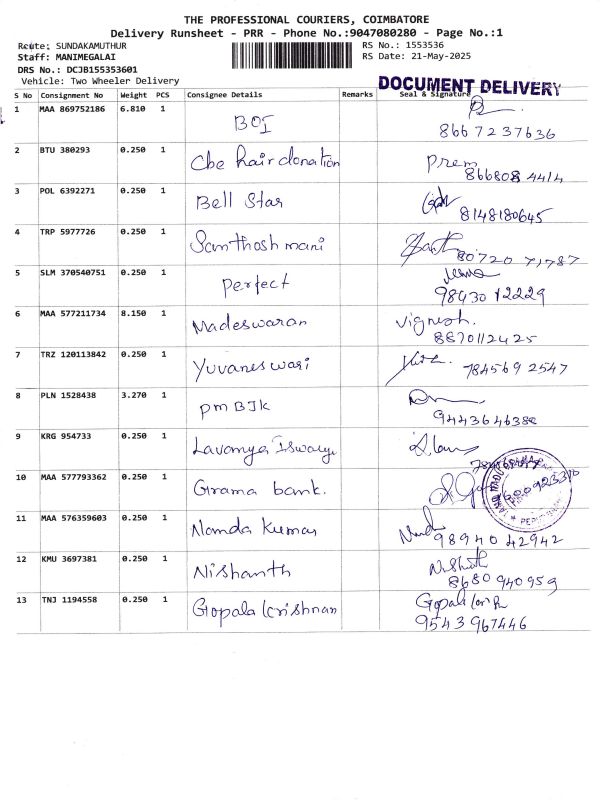 THE PROFESSIONAL COURIERS, COIMBATORE
Delivery Runsheet - PRR - Phone No.:9047080280 - Page No.:1
Route: SUNDAKAMUTHUR
RS No.: 1553536
Staff: MANIMEGALAI
RS Date: 21-May-2025
DRS No.: DCJB155353601
Vehicle: Two Wheeler Delivery
DOCUMENT DELIVERY
S No Consignment No Weight PCS Consignee Details Remarks Seal & Signature
1 MAA 869752186 6.810 1 BOI
8667237636
2 BTU 380293 0.250 1 Cbe hair donation Prem
866808 4414
3 POL 6392271 0.250 1 Bell Star
8148180645
4 TRP 5977726 0.250 1 Santhosh mani
80720 71787
5 SLM 370540751 0.250 1 Perfect
98430 12229
6 MAA 577211734 8.150 1 Madeswaran Vignesh.
8870112425
7 TRZ 120113842 0.250 1 Yuvaneswari
784569 2547
8 PLN 1528438 3.270 1 PM BJK
9443646388
9 KRG 954733 0.250 1 Lavanya Iswarya
10 MAA 577793362 0.250 1 Grama bank.
11 MAA 576359603 0.250 1 Nanda Kumar
98940 42942
12 KMU 3697381 0.250 1 Nishanth Nishanth
8680 940959
13 TNJ 1194558 0.250 1 Gopala Krishnan
9543967446